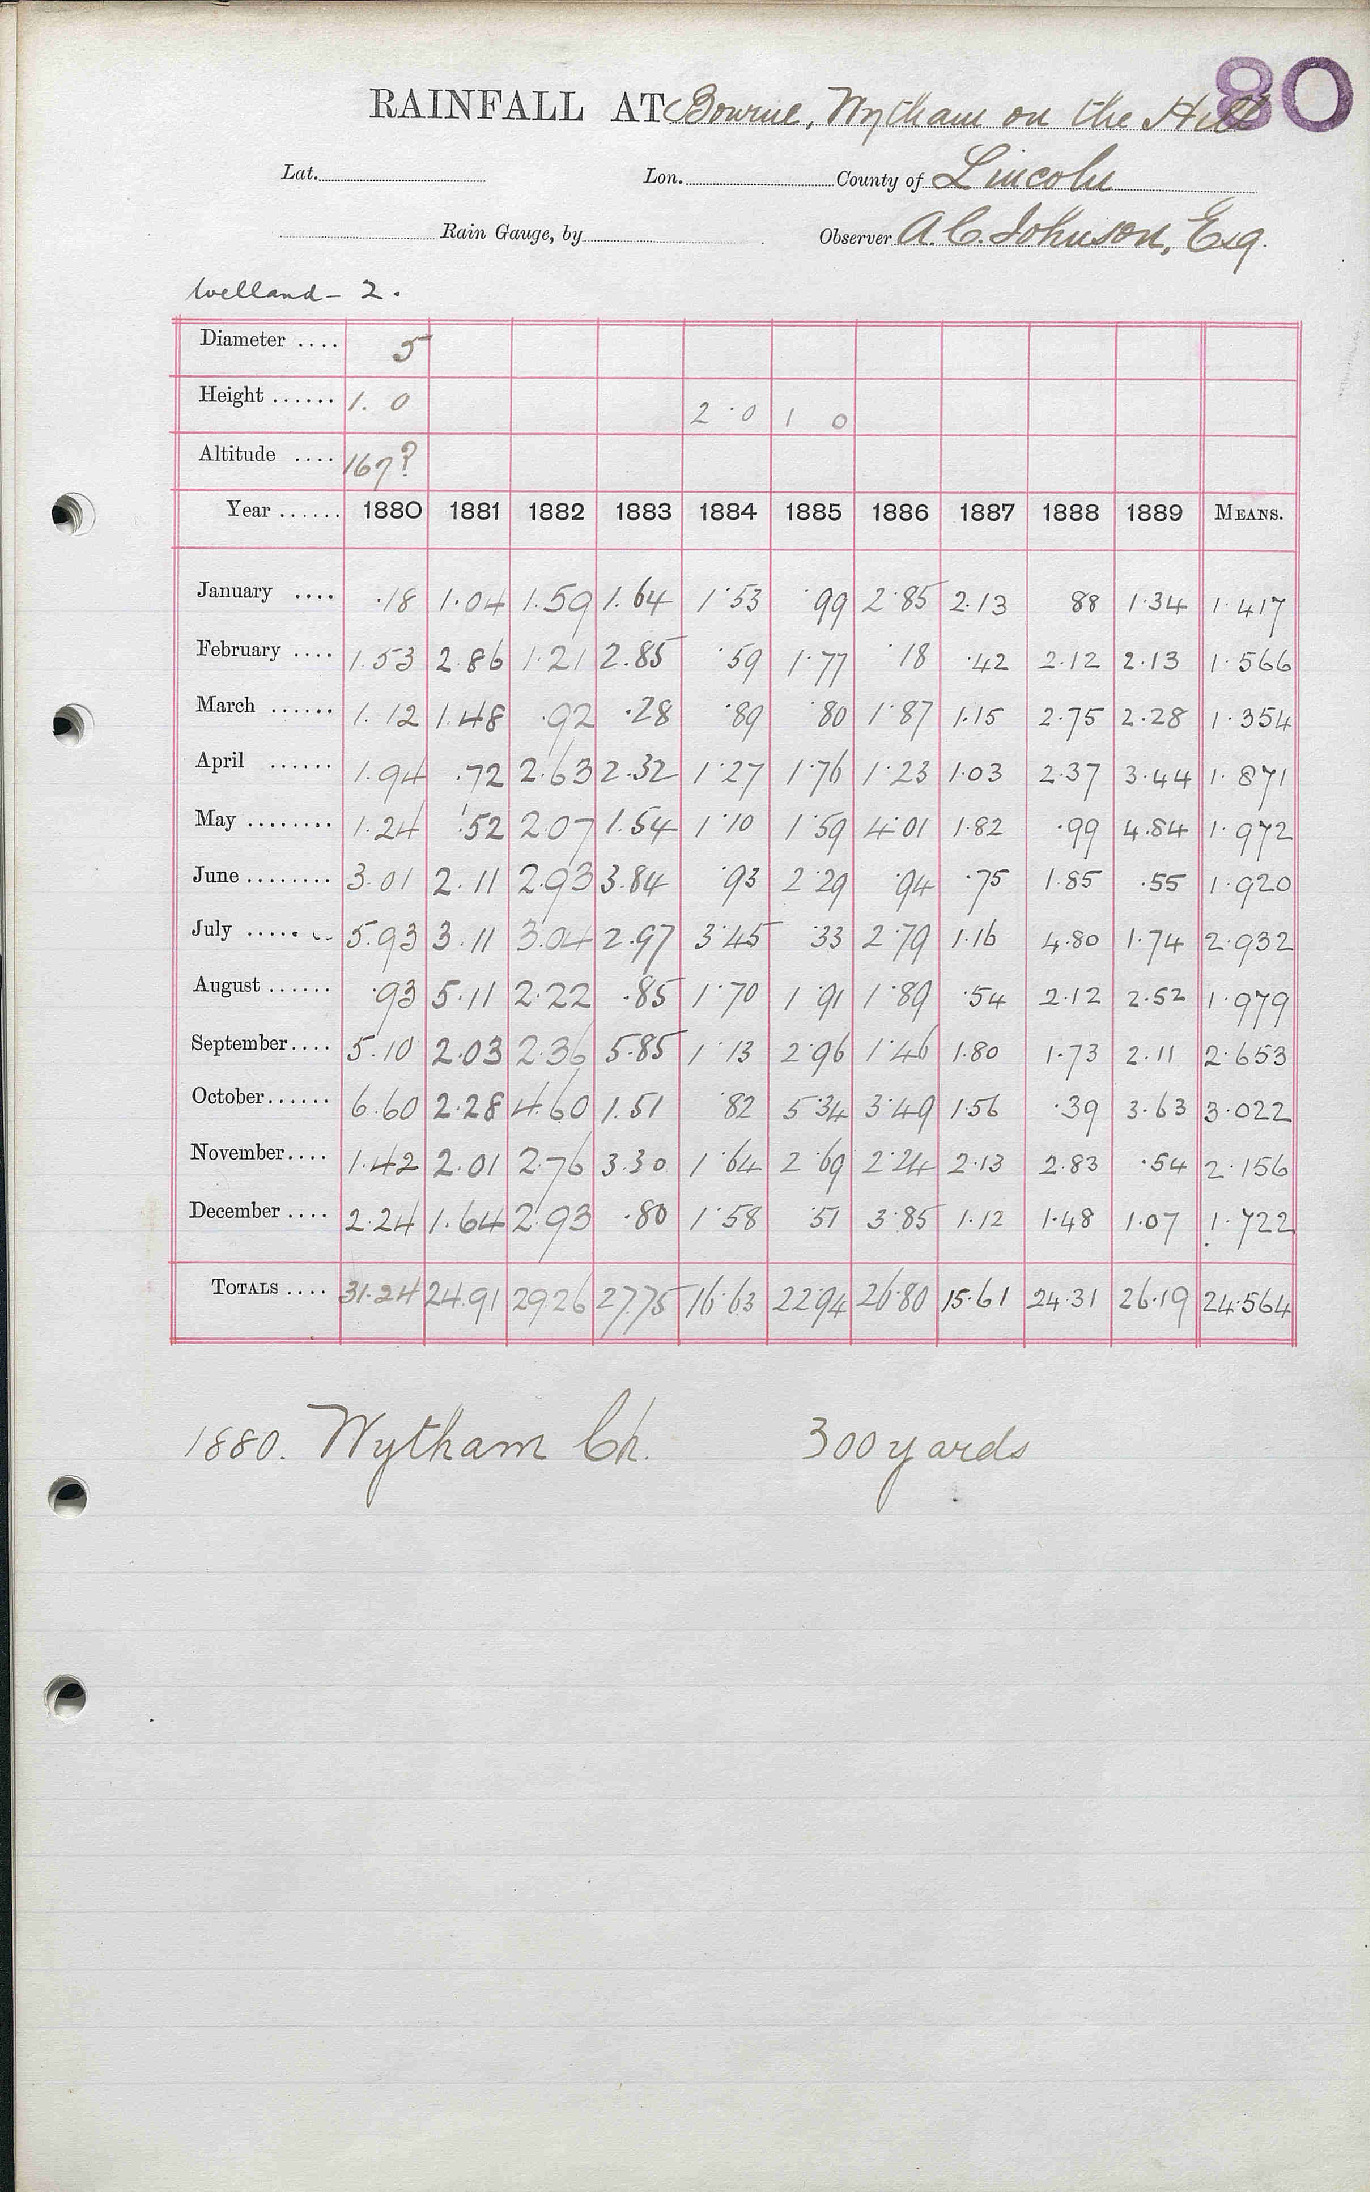 80
RAINFALL AT Bourne, Wytham on the Hill
Lat. Lon. County of Lincoln
Rain Gauge, by Observer A. C. Johnson, Esq.
Welland - 2.
Diameter .... 5
Height ...... 1. 0 2 · 0 1 0
Altitude .... 167?
Year ...... 1880 1881 1882 1883 1884 1885 1886 1887 1888 1889 MEANS.
January .... ·18 1·04 1·59 1.64 1·53 ·99 2·85 2·13 88 1·34 1·417
February .... 1.53 2.86 1·21 2.85 ·59 1·77 ·18 ·42 2·12 2·13 1·566
March ...... 1.12 1.48 ·92 ·28 ·89 ·80 1·87 1·15 2·75 2·28 1·354
April ...... 1.94 ·72 2·63 2·32 1·27 1·76 1·23 1·03 2·37 3·44 1·871
May ........ 1.24 ·52 2·07 1.54 1·10 1·59 4·01 1·82 ·99 4·84 1·972
June ........ 3·01 2·11 2·93 3.84 ·93 2·29 ·94 ·75 1·85 ·55 1·920
July ..... 5.93 3·11 3·04 2·97 3·45 ·33 2·79 1·16 4·80 1·74 2·932
August ...... ·93 5·11 2·22 ·85 1·70 1·91 1·89 ·54 2·12 2·52 1·979
September .... 5·10 2·03 2·36 5·85 1·13 2·96 1·46 1·80 1·73 2·11 2·653
October ...... 6·60 2·28 4·60 1·51 ·82 5·34 3·49 1·56 ·39 3·63 3·022
November .... 1·42 2·01 2·76 3·30 1·64 2·69 2·24 2·13 2·83 ·54 2·156
December .... 2·24 1·64 2·93 ·80 1·58 ·51 3·85 1·12 1·48 1·07 1·722
TOTALS .... 31·24 24.91 2926 27.75 16·63 22·94 26·80 15·61 24·31 26·19 24·564
1880. Wytham Ch. 300 yards